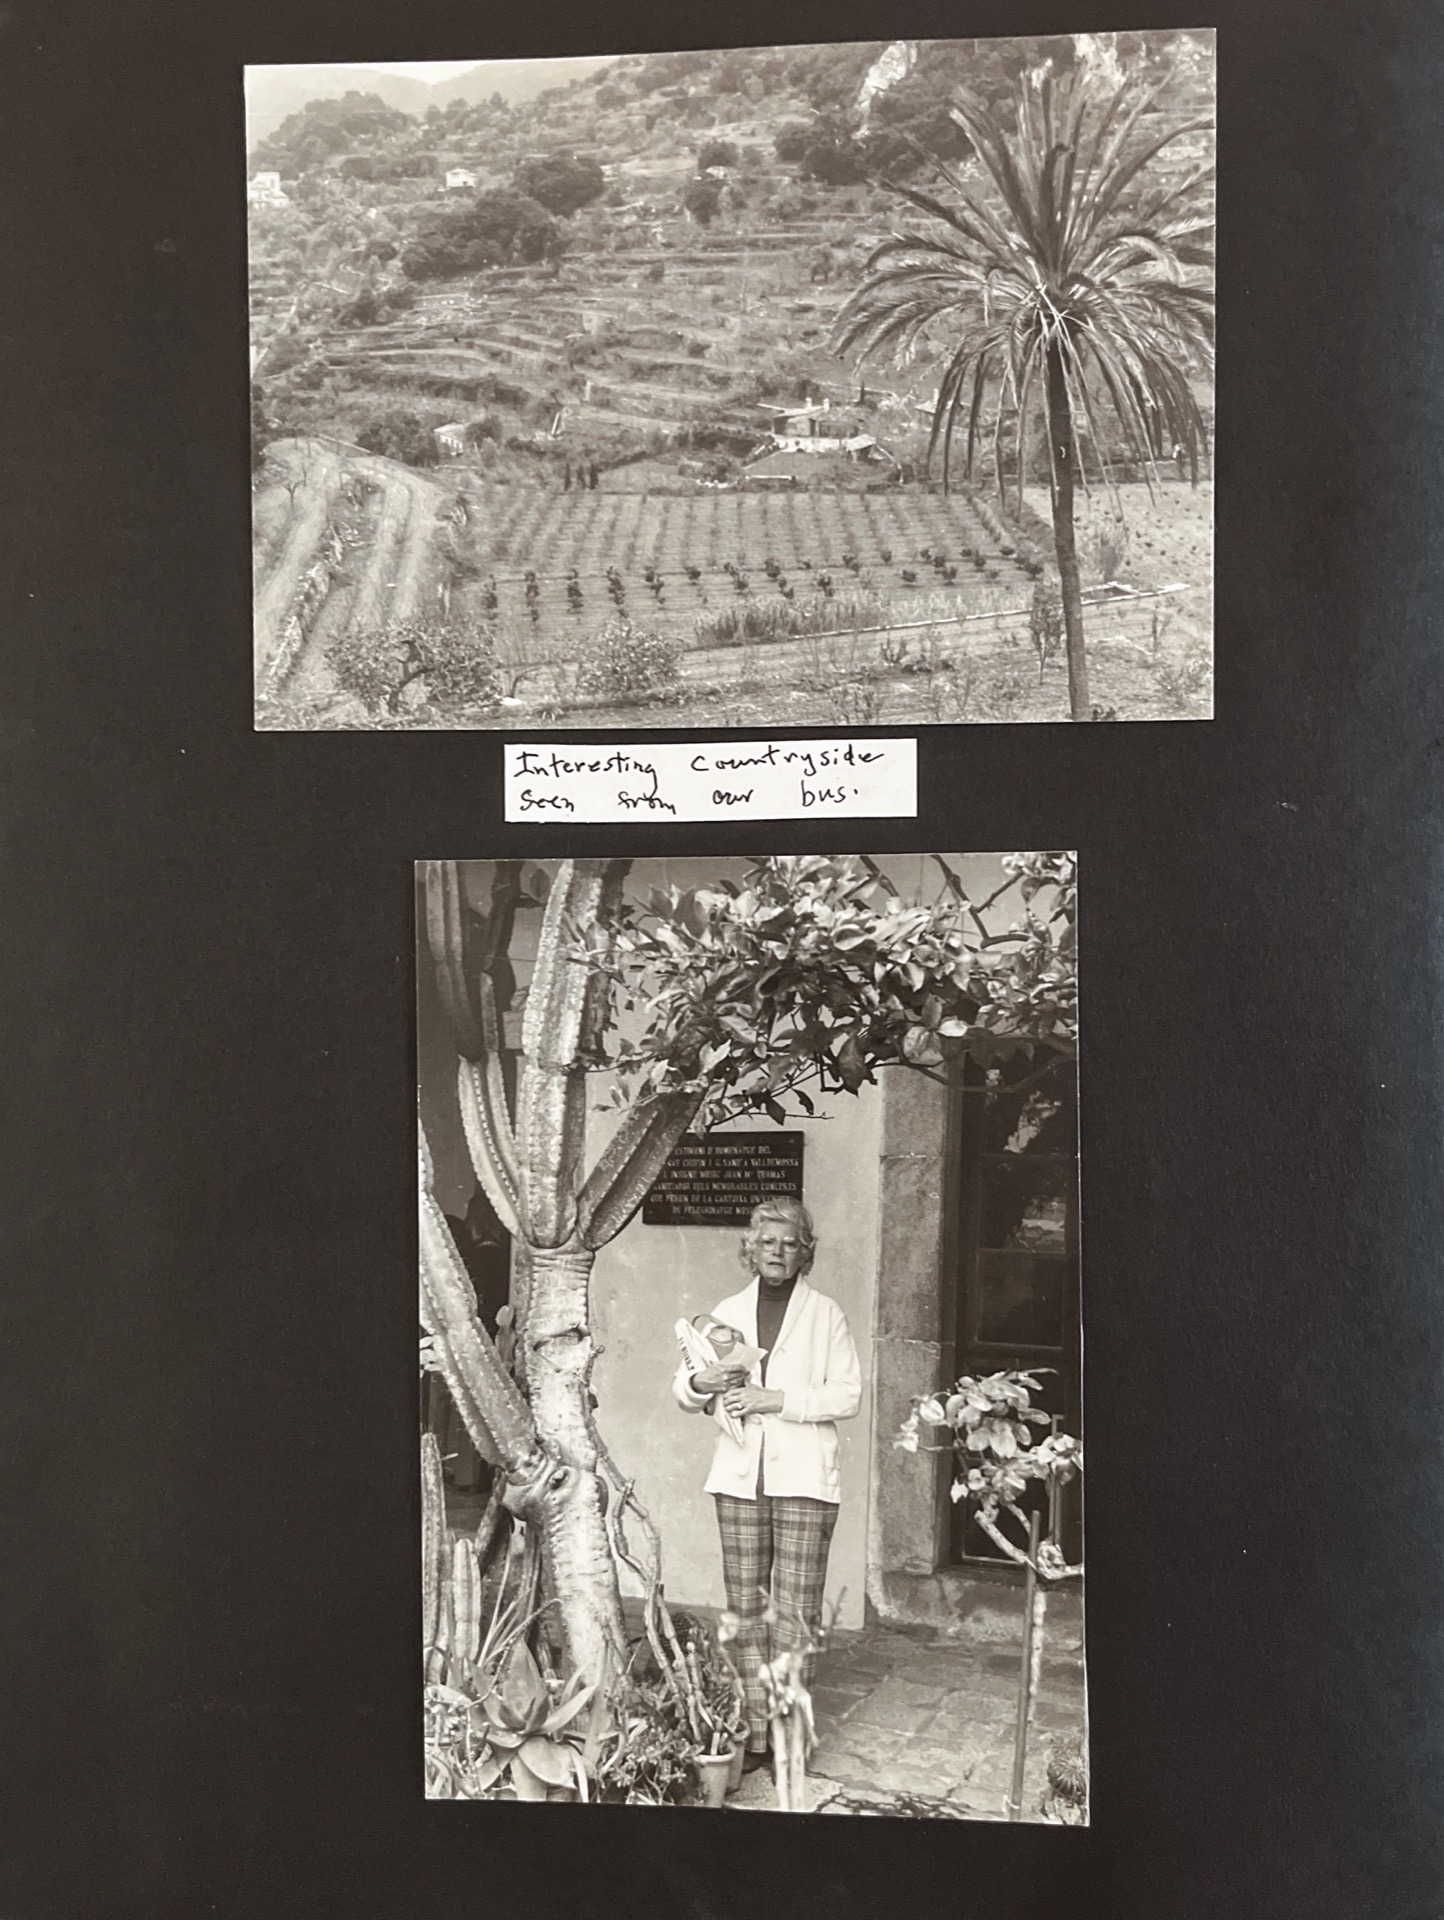 Interesting countryside
seen from our bus.
TESTIMONI D'HOMENATGE DEL
CHOPIN I G. SAND A VALLDEMOSSA
L'INSIGNE MUSIC JOAN Mª THOMAS
DELS MEMORABLES CONCERTS
QUE FEREN DE LA CARTOIXA UN CENTRE
DE PELEGRINATGE